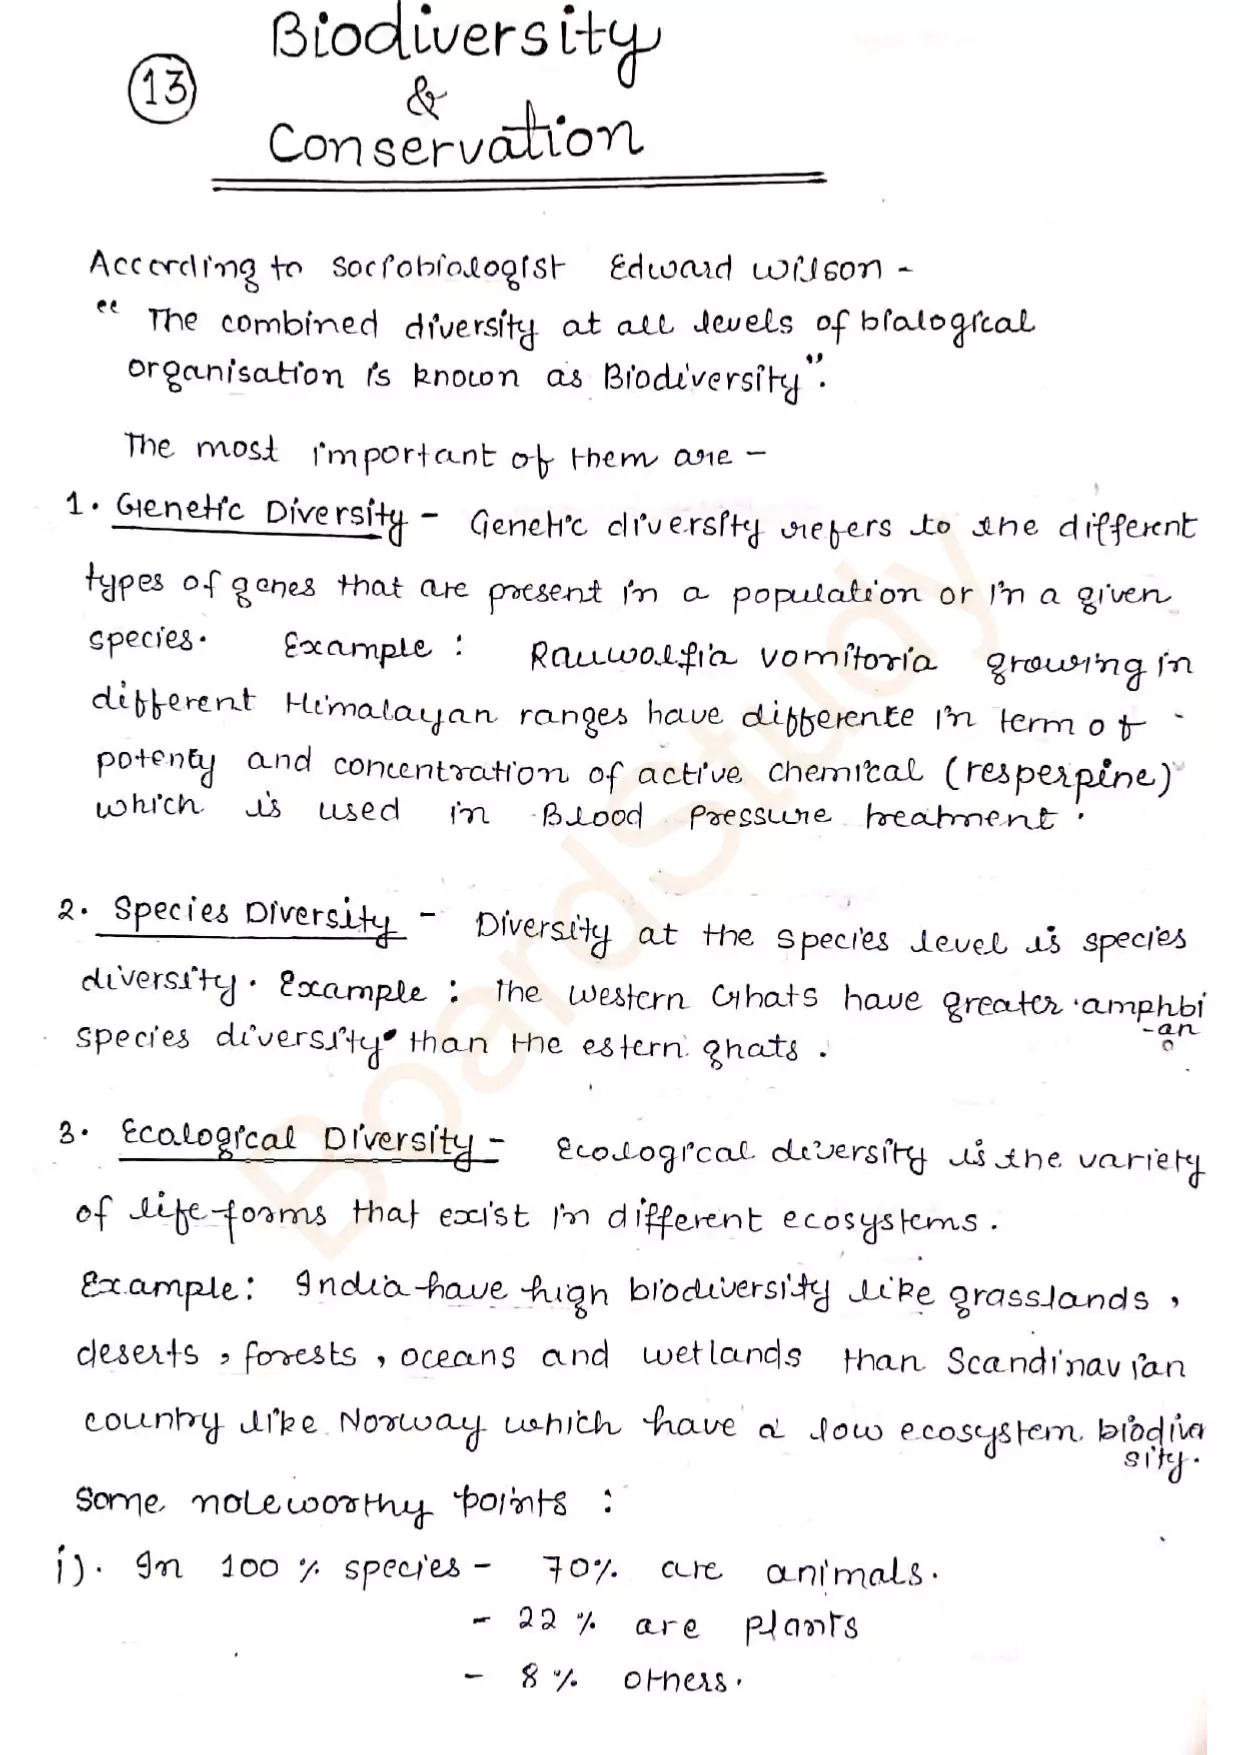 Biodiversity
13
&
Conservation
According to Sociobiologist Edward Wilson -
"The combined diversity at all levels of biological
organisation is known as Biodiversity".
The most important of them are -
1. Genetic Diversity - Genetic diversity refers to the different
types of genes that are present in a population or in a given
species. Example : Rauwolfia vomitoria growing in
different Himalayan ranges have differente in term of
potenty and concentration of active chemical (resperpine)
which is used in Blood Pressure treatment.
2. Species Diversity - Diversity at the species level is species
diversity. Example : the western Ghats have greater amphbi
-an
species diversity than the estern ghats.
3. Ecological Diversity - Ecological diversity is the variety
of life-forms that exist in different ecosystems.
Example: India have high biodiversity like grasslands,
deserts, forests, oceans and wetlands than Scandinavian
country like Norway which have a low ecosystem biodiver
sity.
Some noteworthy points :
i). In 100 % species - 70% are animals.
- 22 % are plants
- 8 % others.
BoardStudy